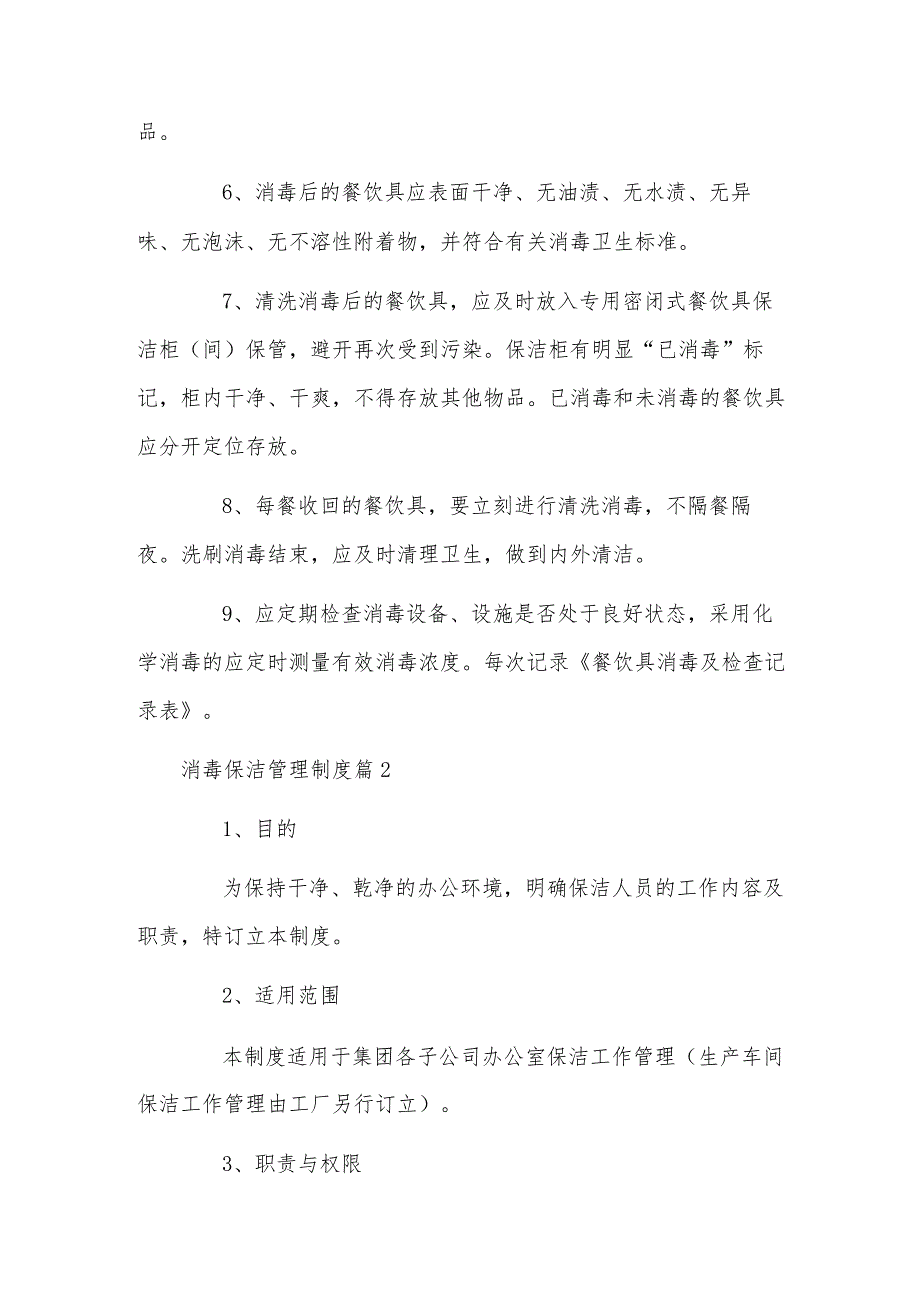 品。
6、消毒后的餐饮具应表面干净、无油渍、无水渍、无异
味、无泡沫、无不溶性附着物，并符合有关消毒卫生标准。
7、清洗消毒后的餐饮具，应及时放入专用密闭式餐饮具保
洁柜（间）保管，避开再次受到污染。保洁柜有明显“已消毒”标
记，柜内干净、干爽，不得存放其他物品。已消毒和未消毒的餐饮具
应分开定位存放。
8、每餐收回的餐饮具，要立刻进行清洗消毒，不隔餐隔
夜。洗刷消毒结束，应及时清理卫生，做到内外清洁。
9、应定期检查消毒设备、设施是否处于良好状态，采用化
学消毒的应定时测量有效消毒浓度。每次记录《餐饮具消毒及检查记
录表》。
消毒保洁管理制度篇2
1、目的
为保持干净、乾净的办公环境，明确保洁人员的工作内容及
职责，特订立本制度。
2、适用范围
本制度适用于集团各子公司办公室保洁工作管理（生产车间
保洁工作管理由工厂另行订立）。
3、职责与权限